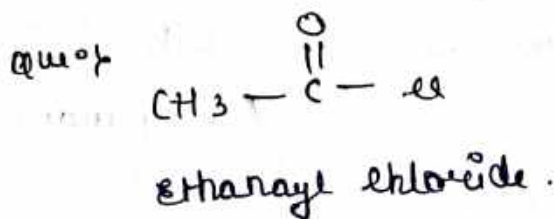 Que of
O
||
CH3 — C — Cl
Ethanayl chloride.